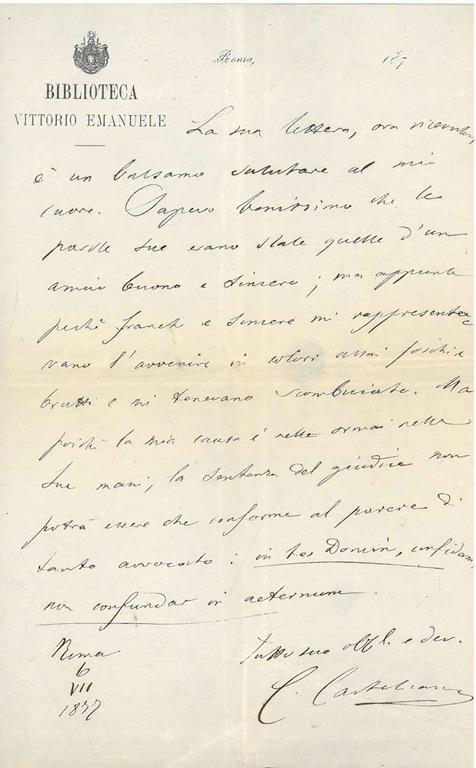 Roma, 187
BIBLIOTECA
VITTORIO EMANUELE
La sua lettera, ora ricevuta,
è un balsamo salutare al mio
cuore. Sapevo benissimo che le
parole sue erano state quelle d'un
amico buono e sincero; ma appunto
perchè franche e sincere mi rappresenta-
vano l'avvenire in colori assai foschi e
brutti e mi tenevano scombuiato. Ma
poichè la mia causa è nelle ormai nelle
sue mani, la sentenza del giudice non
potrà essere che conforme al parere di
tanto avvocato: in te, Domin, confidam
non confundar in aeternum.
Roma
6
VII
1877
Tutto suo obbl. e dev.
C.